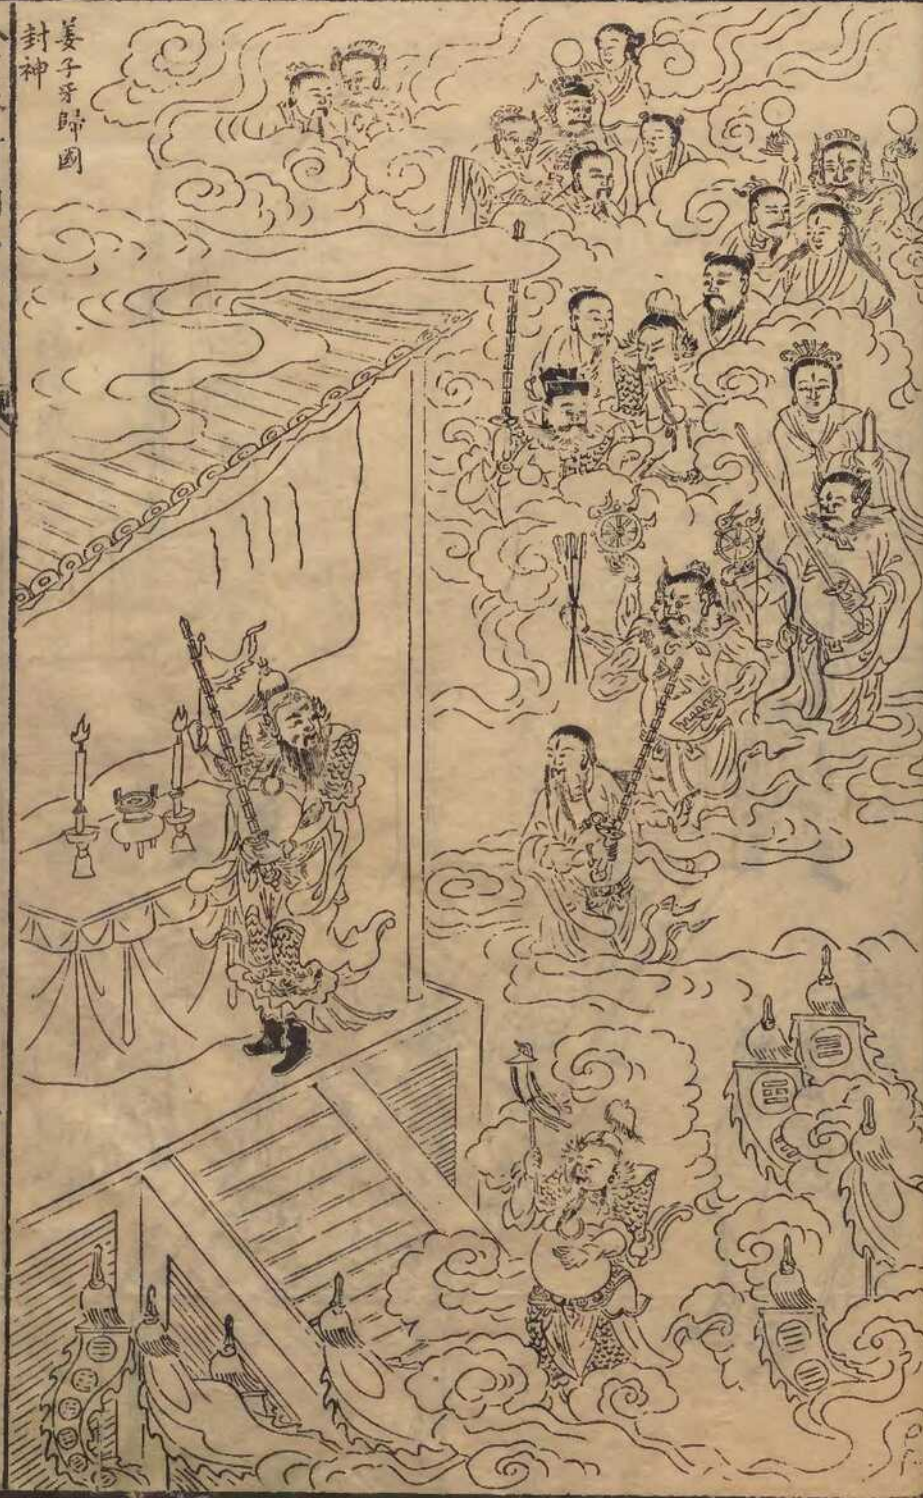 姜子牙歸國
封神